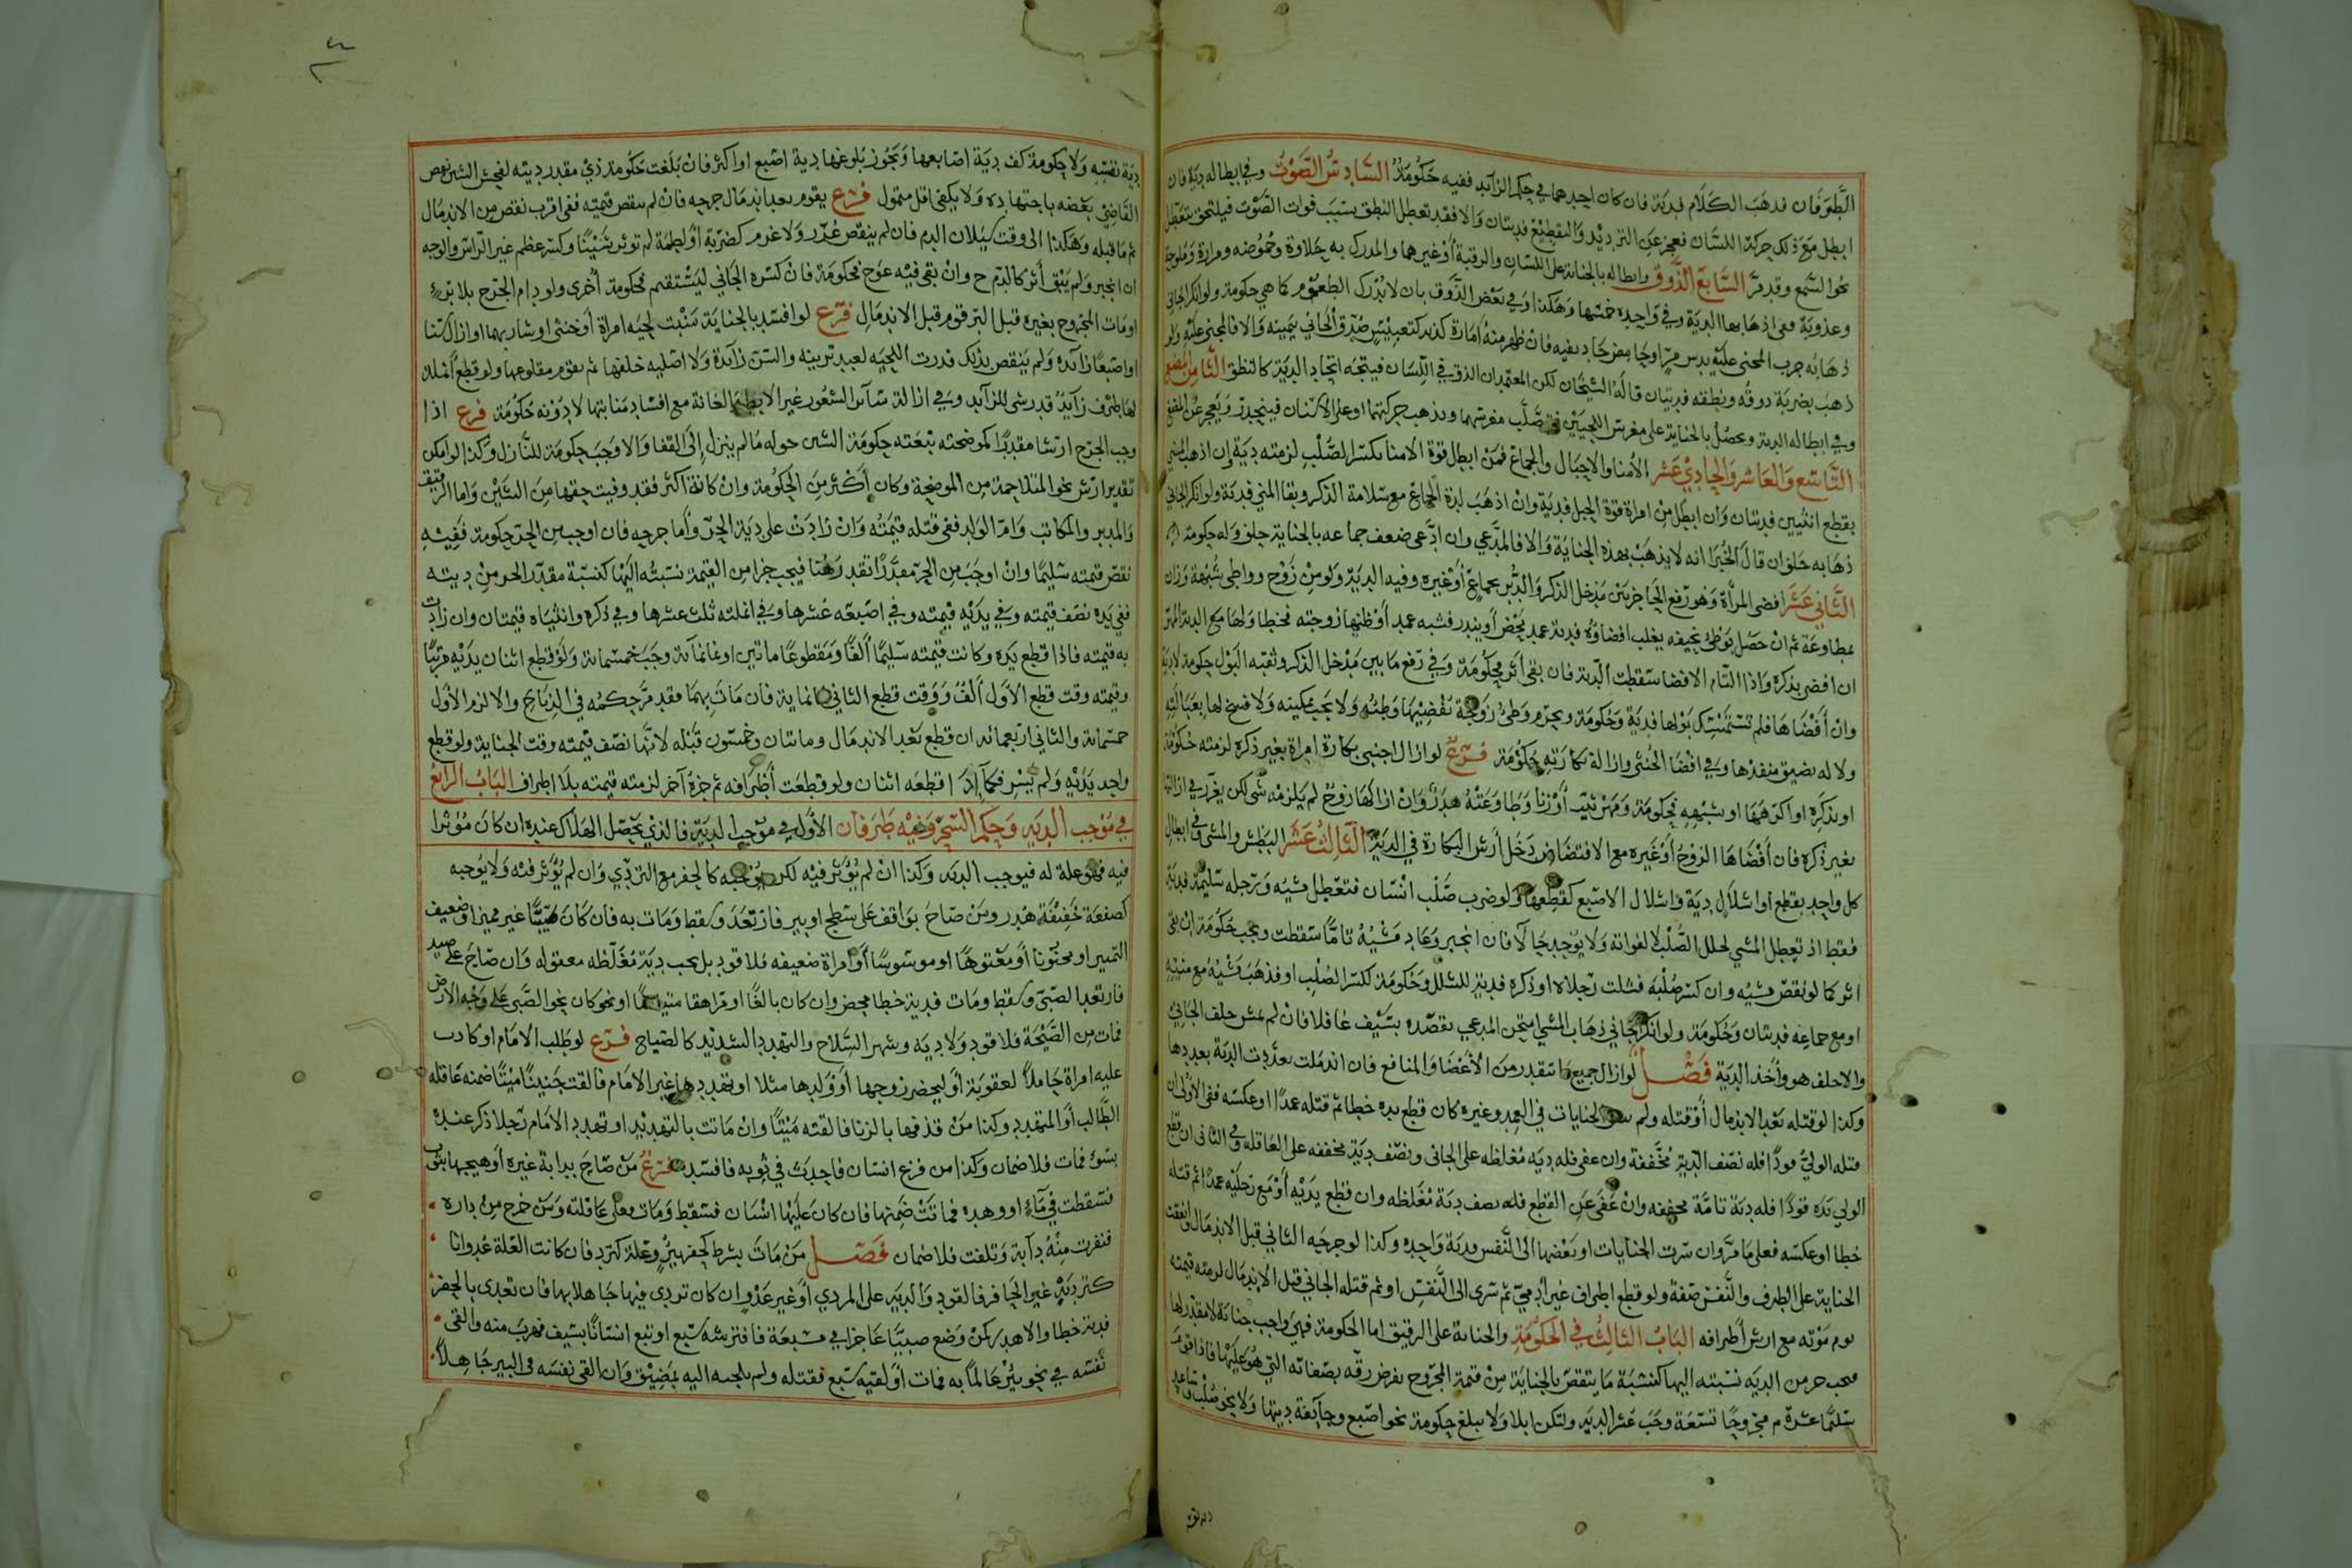 الطرفان فذهب الكلام فدية فان كان احدهما في حكم الزائد ففيه حكومة السادس الصوت وفي ابطاله دية فان
ابطل مع ذلك حركة اللسان فعجز عن الترديد والتقطيع فديتان والا فقد تعطل النطق بسبب فوات الصوت فيلتحق بتعطل
نحو السمع وقد مر السابع الذوق وابطاله بالجناية على اللسان والرقبة أو غيرهما والمدرك به حلاوة وحموضة ومرارة وملوحة
وعذوبة ففي اذهابها الدية وفي واحدة خمسها وهكذا وفي بعض الذوق بان لا يدرك الطعوم كما هي حكومة ولو انكر الجاني
ذهابه جرب المجنى عليه بدس مر او حامض حاد بفيه فان ظهر منه امارة كذبه كتعبيس صدق الجاني بيمينه والا فالمجنى عليه ولو
ذهب بضربة ذوقه ونطقه فديتان قاله الشيخان لكن المعتمد ان الذوق في اللسان فيتجه اتحاد الدية كالنطق الثامن المضغ
وفي ابطاله الدية ويحصل بالجناية على مغرس اللحيين فتصلب مغرسهما وتذهب حركتهما او على الاسنان فيتخدر ويعجز عن المضغ
التاسع والعاشر والحادي عشر الامنا والاحبال والجماع فمن ابطل قوة الامنا بكسر الصلب لزمته دية ان اذهب المني
بقطع انثيين فديتان وان ابطل من امرأة قوة الحبل فدية وان اذهب لذة الجماع مع سلامة الذكر وبقا المني فدية ولو انكر الجاني
ذهابه حلف ان قال الخبرا انه لا يذهب بهذه الجناية والا فالمدعي وان ادعى ضعف جماعه بالجناية حلف وله حكومة
الثاني عشر افضى المرأة وهو رفع الحاجز بين مدخل الذكر والدبر بجماع أو غيره وفيه الدية ولو من زوج وواطى شبهة وزان
بمطاوعة ثم ان حصل بوطئ نحيفه يغلب افضاؤه فدية عمد محض أو يندر فشبه عمد أو ظنها زوجته فخطا ولها مع الدية المهر
ان افضى بذكره واذا التام الافضا سقطت الدية فان بقى أثر فحكومة وفي رفع ما بين مدخل الذكر وثقبه البول حكومة لا دية
وان أفضاها فلم تستمسك بولها فدية وحكومة ويحرم وطئ زوجة تفضيها وطئه ولا يجب تمكينه ولا فسخ لها بعبالته
ولا له بضيق منفذها وفي افضا الخنثى وازالة بكارته حكومة فرع لو ازال اجنبي بكارة امرأة بغير ذكره لزمته حكومة
او بذكره او اكرهها او شبهه فحكومة ومهر ثيب أو زنا وطاوعته هدر وان ازالها زوج لم يلزمه شى لكن يعزر في ازالتها
بغير ذكره فان أفضاها الزوج أو غيره مع الافتضاض دخل أرش البكارة في الدية الثالث عشر البطش والمشى وفي ابطال
كل واحد بقطع او اشلال دية واشلال الاصبع كقطعها ولو ضرب صلب انسان فتعطل مشيه ورجله سليمة فدية
فقط اذ تعطل المشي لخلل الصلب لا لفواته ولا يوخذ حالا فان انجبر وعاد مشيه تاما سقطت وتجب حكومة ان بقى
اثر كما لو نقص مشيه وان كسر صلبه فشلت رجلاه او ذكره فدية للشلل وحكومة لكسر الصلب او فذهب مشيه مع منيه
او مع جماعه فديتان وحكومة ولو انكر الجاني ذهاب المشي امتحن المدعي بقصده بسيف غافلا فان لم يمش حلف الجاني
والا حلف هو وأخذ الدية فصل لو ازال جميع ما تقدر من الأعضا والمنافع فان اندملت تعددت الدية بعددها
وكذا لو قتله بعد الاندمال أو قتله ولم الجنايات في العمد وغيره كان قطع يده خطا ثم قتله عمدا او عكسه ففي الاولى ان
قتله الولي قودا فله نصف الدية مخففة وان عفى فله دية مغلظة على الجاني ونصف دية مخففه على العاقله وفي الثانى ان قطع
الولي يده قودا فله دية تامة مخففه وان عفى عن القطع فله نصف دية مغلظه وان قطع يديه أو مع رجليه عمدا ثم قتله
خطا او عكسه فعلى ما مر وان سرت الجنايات او بعضها الى النفس فدية واحدة وكذا لو جرحه الثاني قبل الاندمال واتفقت
الجناية على الطرف والنفس صفة ولو قطع اطراف غير آدمي ثم سرى الى النفس او ثم قتله الجاني قبل الاندمال لزمته قيمته
يوم موته مع ارش أطرافه الباب الثالث في الحكومة والجناية على الرقيق اما الحكومة فهي واجب جناية لا مقدر لها
فيجب جز من الدية نسبته اليها كنسبة ما ينقص بالجناية من قيمة المجروح بفرض رقه بصفاته التي هو عليها فاذا قوم
سليما عشرة ثم مجروحا تسعة وجب عشر الدية ولتكن ابلا ولا يبلغ حكومة نحو اصبع وجائفة ديتها ولا نحو صلب وساعد
دية نفسه ولا حكومة كف دية اصابعها ويجوز بلوغها دية اصبع او اكثر فان بلغت حكومة ذي مقدر ديته لفحش الشين نقص
القاضي بعضه باجتهاده ولا يكفي اقل متمول فرع يقوم بعد اندمال جرحه فان لم ينقص قيمته ففي اقرب نقص من الاندمال
ثم ما قبله وهكذا الى وقت سيلان الدم فان لم ينقص عزر ولا غرم كضربة أو لطمة لم توثر شينا وكسر عظم غير الراس والوجه
ان انجبر ولم يبق أثر كالدم ح وان بقى فيه عوج فحكومة فان كسره الجاني ليستقيم فحكومة أخرى ولو دام الجرح بلا برء
او مات المجروح بغيره قبل البرء قوم قبل الاندمال فرع لو افسد بالجناية منبت لحية امرأة أو خنثى او شاربهما او ازال سنا
او اصبعا زائدة ولم ينقص بذلك قدرت اللحية لعبد تزينه والسن زائدة ولا اصليه خلفها ثم يقوم مقلوعها ولو قطع أنملة
لها طرف زائد قدر شى للزائد وفي ازالة سائر الشعور غير الابط والعانة مع افساد منابتها لا دونه حكومة فرع اذا
وجب الجرح ارشا مقدرا كموضحته تبعته حكومة الشين حوله ما لم ينزل إلى القفا والا وجب حكومة للنازل وكذا لو امكن
تقدير ارش نحو المتلاحمة من الموضحة وكان أكثر من الحكومة وان كانت أكثر فقد وفيت حقها من الشين واما الرقيق
والمدبر والمكاتب وام الولد ففي قتله قيمته وان زادت على دية الحر وأما جرحه فان اوجب من الحر حكومة ففيه
نقص قيمته سليما وان اوجب من الحر مقدرا تقدر هنا فيجب جزا من القيمة نسبته اليها كنسبة مقدر الحر من ديته
ففي يده نصف قيمته وفي يديه قيمته وفي اصبعه عشرها وفي انملته ثلث عشرها وفي ذكره وانثياه قيمتان وان زادت
به قيمته فاذا قطع يده وكانت قيمته سليما ألفا ومقطوعا مائتين او ثمانمائة وجب خمسمائة ولو قطع اثنان يديه مرتبا
وقيمته وقت قطع الأول ألف ووقت قطع الثاني ثمانماية فان مات بهما فقد مر حكمه في الذبائح والا لزم الأول
خمسمائة والثاني اربعمائه ان قطع بعد الاندمال ومائتان وخمسون قبله لأنها نصف قيمته وقت الجناية ولو قطع
واحد يديه ولم يسر فكما إذا قطعه اثنان ولو قطعت أطرافه ثم جزه آخر لزمته قيمته بلا اطراف الباب الرابع
في موجب الدية وحكم السحر وفيه طرفان الأول في موجب الدية فالذي يحصل الهلاك عنده ان كان مؤثرا
فيه فهو علة له فيوجب الدية وكذا ان لم يؤثر فيه لكن يوجبه كالحفر مع التردي وان لم يؤثر فيه ولا يوجبه
كصفعة خفيفة هدر ومن صاح بواقف على سطح او بير فارتعد وسقط ومات به فان كان صبيا غير مميز او ضعيف
التمييز او مجنونا أو معتوها او موسوسا أو امرأة ضعيفه فلا قود بل يجب دية مغلظه معقوله وان صاح على صيد
فارتعد الصبي وسقط ومات فدية خطا محض وان كان بالغا او مراهقا متيقظا او نحو كان نحو الصبى على وجه الأرض
فمات من الصيحة فلا قود ولا دية وشهر السلاح والتهديد الشديد كالصياح فرع لو طلب الامام او كاذب
عليه امرأة حاملا لعقوبة أو ليحضر زوجها أو ولدها مثلا او تهددها غير الامام فالقت جنينا ميتا ضمنه عاقله
الطالب أو المتهدد وكذا من قذفها بالزنا فالقته ميتا وان ماتت بالتهديد او تهدد الامام رجلا ذكر عنده
بسوء فمات فلا ضمان وكذا من فزع انسان فاحدث في ثوبه فافسده فرع من صاح بدابة غيره أو هيجها بثوب
فسقطت في ماء او وهدة فماتت ضمنها فان كان عليها انسان فسقط ومات فعلى عاقلته ومن خرج من داره
فنفرت منه دابة وتلفت فلا ضمان فصل من مات بشرط كحفر بير وعلة كترد فان كانت العلة عدوانا
كتردية غير الحافر فالقود والدية على المردي أو غير عدو ان كان تردى فيها جاهلا بها فان تعدى بالحفر
فدية خطا والا هدر كمن وضع صبيا عاجزا في مسبعة فافترسه سبع او تبع انسانا بسيف فهرب منه والقى
نفسه في نحو بئر عالما به فمات أو لقيه سبع فقتله ولم يلجه اليه بمضيق وان القى نفسه في البير جاهلا